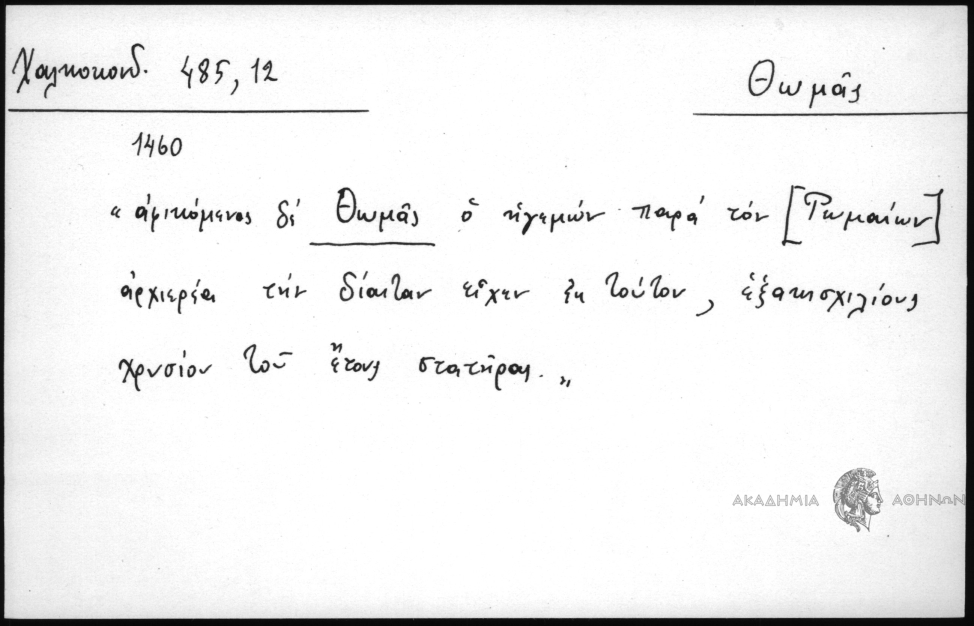 Χαλκοκονδ. 485, 12
Θωμᾶς
1460
« ἀφικόμενος δέ Θωμᾶς ὁ ἡγεμών παρά τόν [Ῥωμαίων]
ἀρχιερέα τήν δίαιταν εἶχεν ἐκ τούτου, ἑξακισχιλίους
χρυσίου τοῦ ἔτους στατῆρας. »
ΑΚΑΔΗΜΙΑ ΑΘΗΝΩΝ